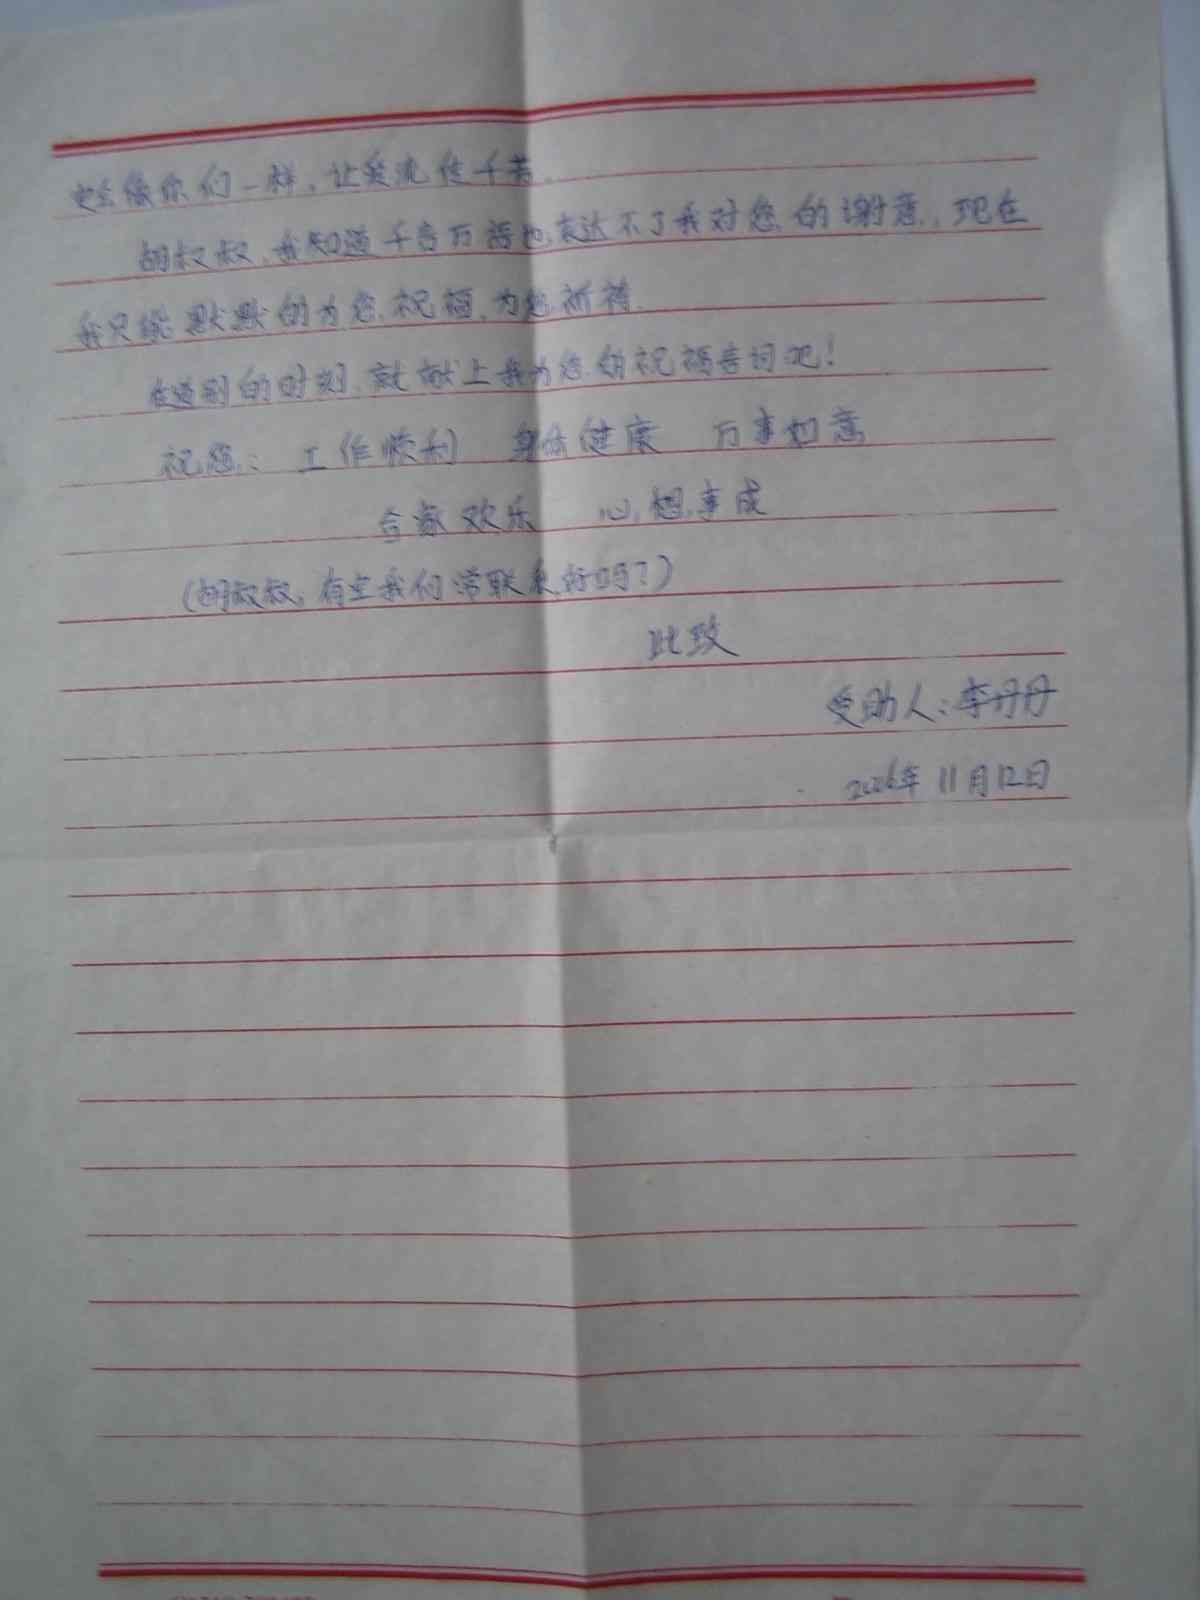 会像你们一样，让爱流传千
胡叔叔，我知道千言万语也表达不了我对您的谢意，现在
我只能默默的为您祝福，为您祈祷。
在道别的时刻，就献上我为您的祝福言词吧！
祝您：工作顺利 身体健康 万事如意
合家欢乐 心想事成
（胡叔叔，有空我们常联系好吗？）
此致
受助人：李丹丹
年11月12日